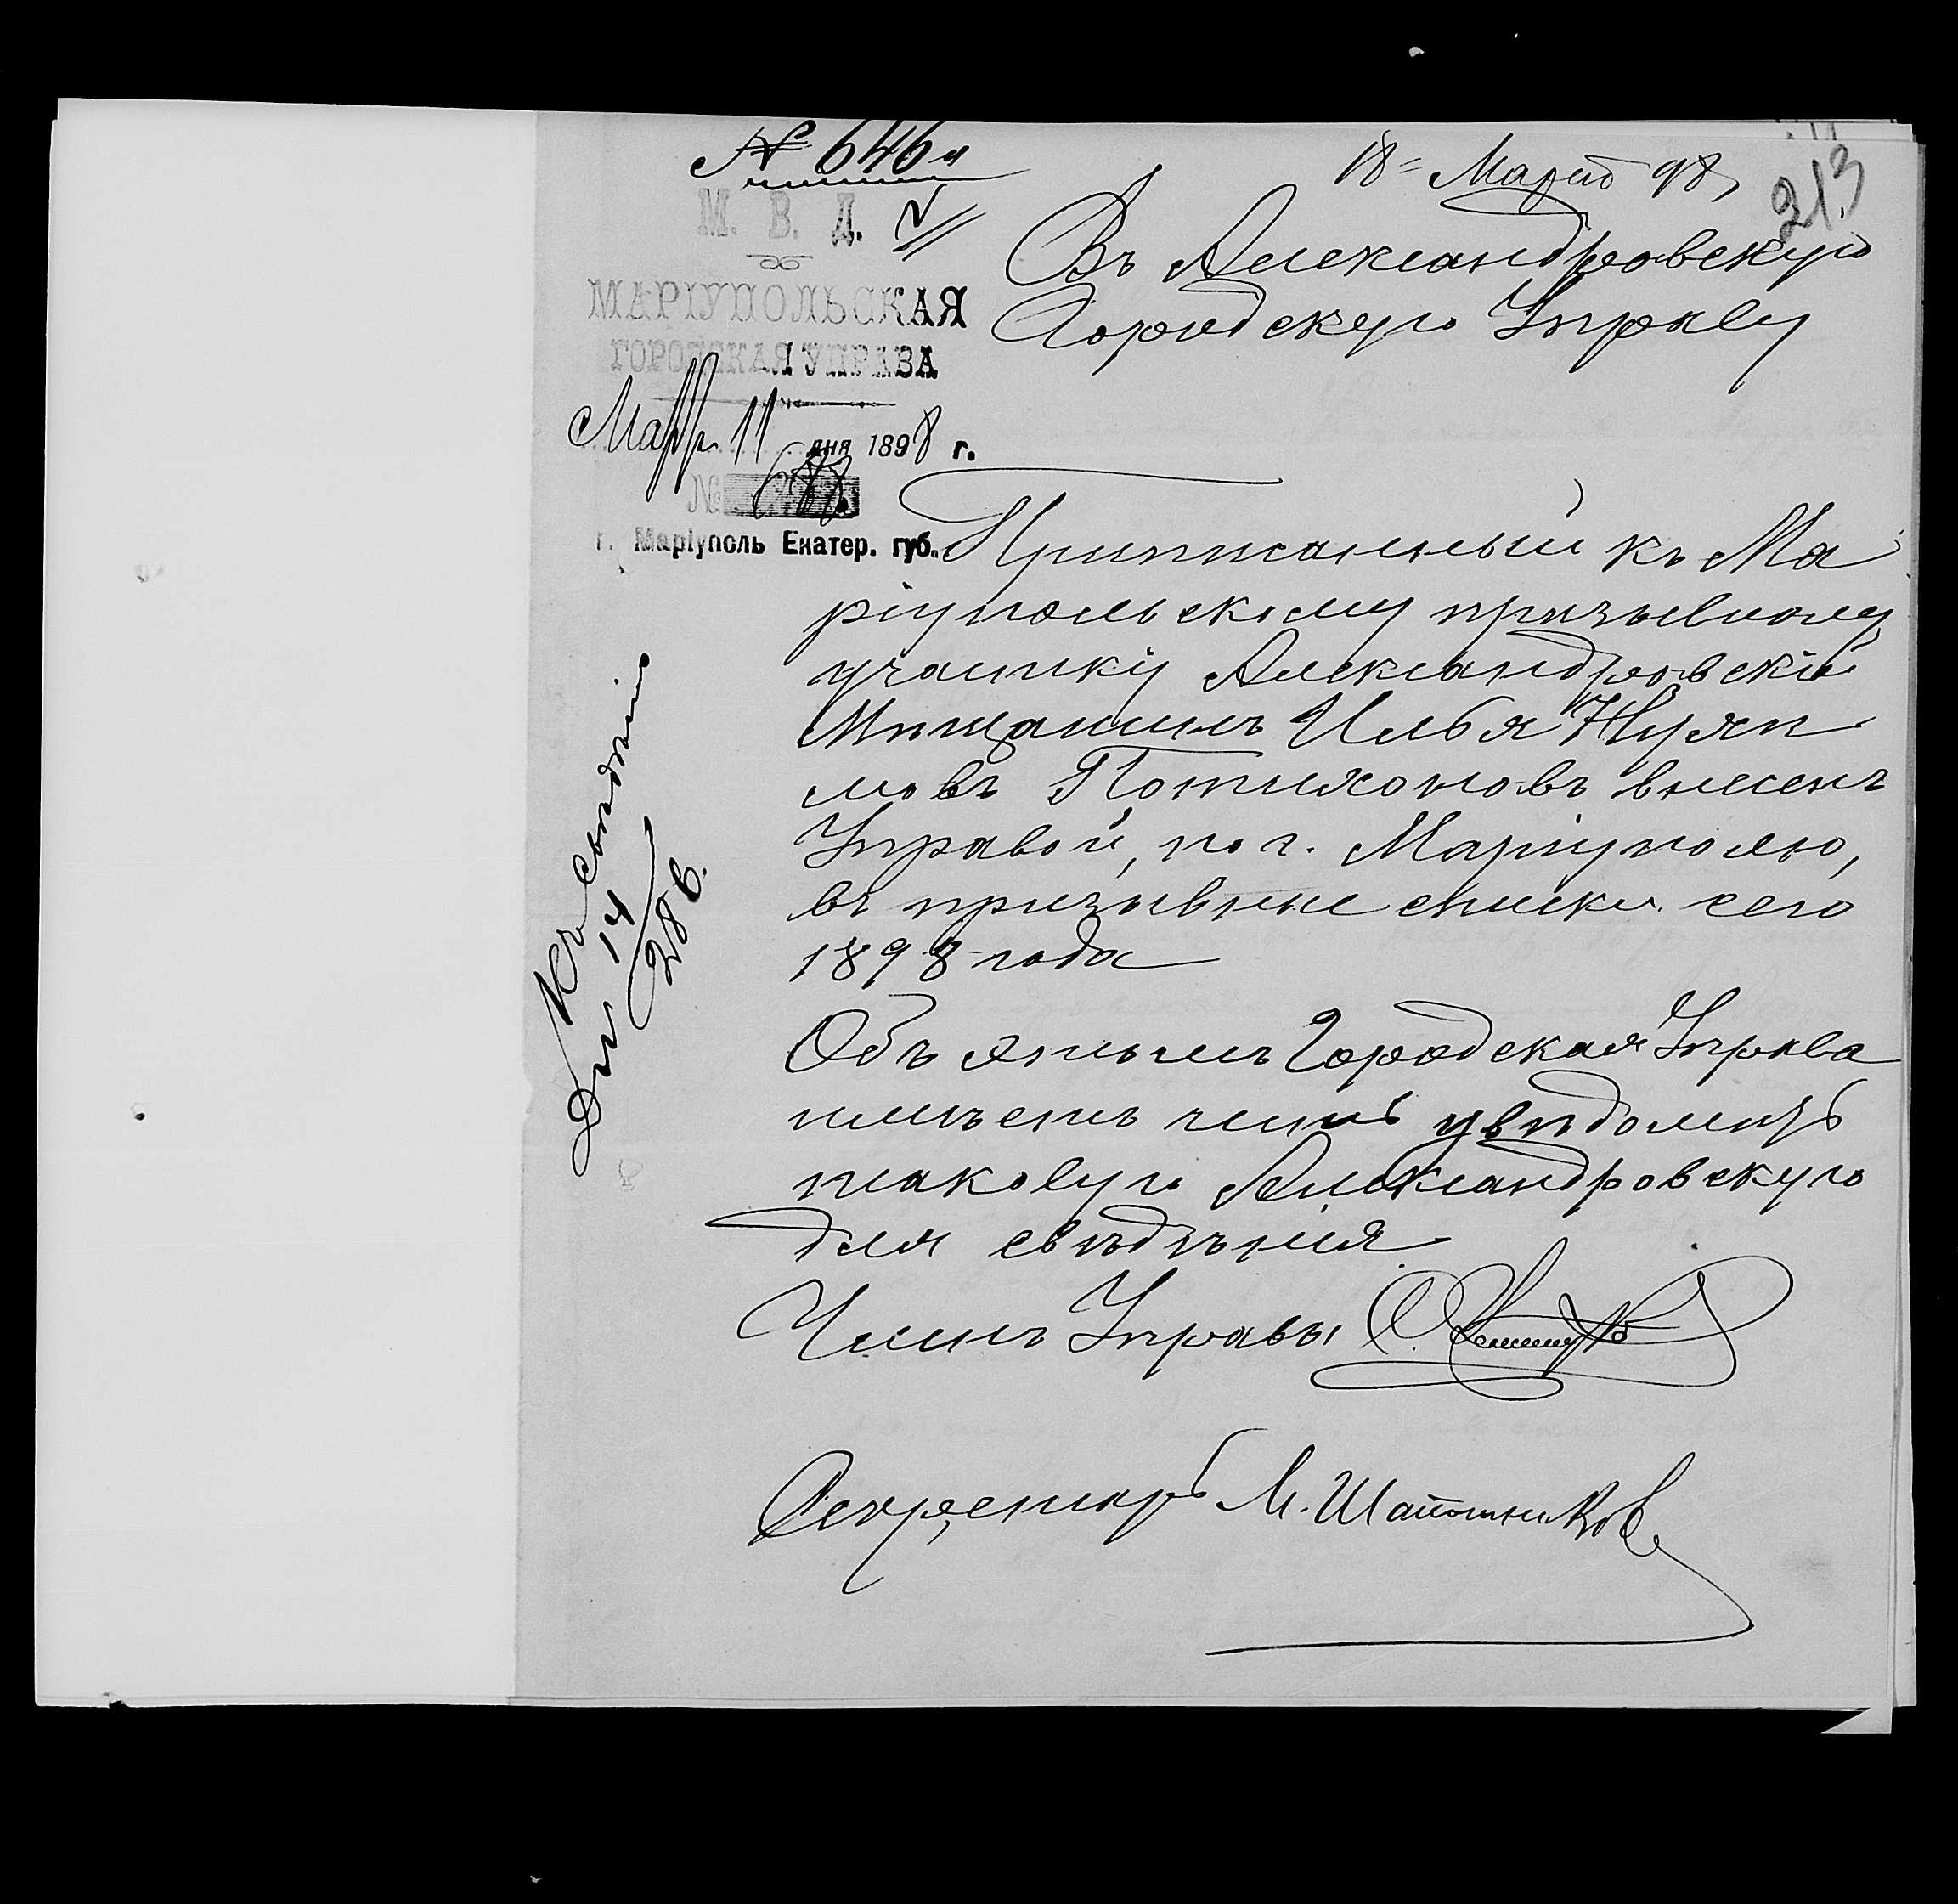 № 646
18 Марта 98
213
М. В. Д.
МАРІУПОЛЬСКАЯ
ГОРОДСКАЯ УПРАВА
Марта 11 дня 1898 г.
№
г. Маріуполь Екатер. губ.
Въ Александровскую
Городскую Управу
Приписанный къ Ма
ріупольскому призывному
участку Александровскій
Мѣщанинъ Илья
внесенъ
Управой, по г. Маріуполю,
въ призывные списки сего
1898 года
Объ этомъ Городская Управа
имѣетъ честь увѣдомить
таковую Александровскую
для свѣдѣнія
Членъ Управы
Секретарь М. Шапошников
Къ свѣдѣнію
14
28